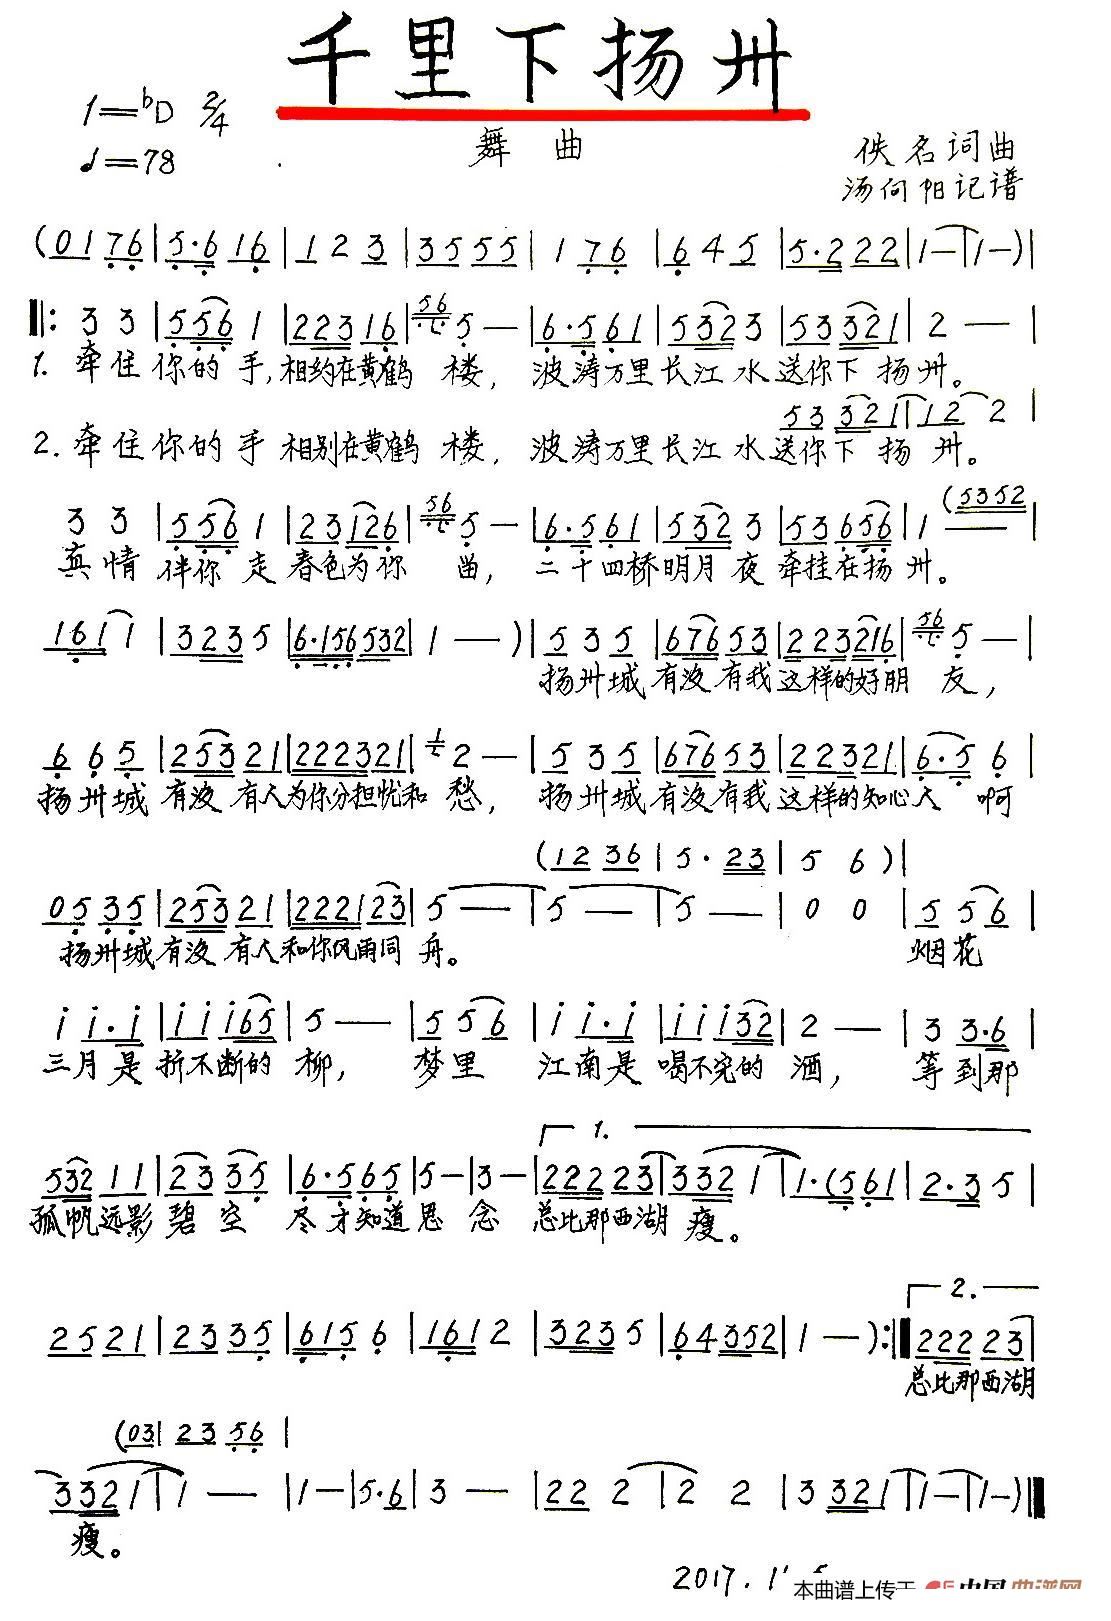 千里下扬州
1=bD 2/4
♩=78
舞曲
佚名词曲
汤向阳记谱
(0 1 7 6 | 5·6 1 6 | 1 2 3 | 3 5 5 5 | 1 7 6 | 6 4 5 | 5·2 2 2 | 1 — | 1 — ) |
‖: 3 3 | 5 5 6 1 | 2 2 3 1 6 | 56 5 — | 6·5 6 1 | 5 3 2 3 | 5 3 3 2 1 | 2 — |
1. 牵住你的手,相约在黄鹤楼,波涛万里长江水送你下扬州。
5 3 3 2 1 | 1 2 2 |
2. 牵住你的手相别在黄鹤楼,波涛万里长江水送你下扬州。
(5 3 5 2
3 3 | 5 5 6 1 | 2 3 1 2 6 | 56 5 — | 6·5 6 1 | 5 3 2 3 | 5 3 6 5 6 | 1 — |
真情伴你走春色为你留,二十四桥明月夜牵挂在扬州。
1 6 1 1 | 3 2 3 5 | 6·1 5 6 5 3 2 | 1 — ) | 5 3 5 | 6 7 6 5 3 | 2 2 3 2 1 6 | 56 5 — |
扬州城有没有我这样的好朋友,
6 6 5 | 2 5 3 2 1 | 2 2 2 3 2 1 | 1 2 — | 5 3 5 | 6 7 6 5 3 | 2 2 3 2 1 | 6·5 6 |
扬州城有没有人为你分担忧和愁,扬州城有没有我这样的知心人啊
(1 2 3 6 | 5·2 3 | 5 6 ) |
0 5 3 5 | 2 5 3 2 1 | 2 2 2 1 2 3 | 5 — | 5 — | 5 — | 0 0 | 5 5 6 |
扬州城有没有人和你风雨同舟。烟花
i i·i | i i i 6 5 | 5 — | 5 5 6 | i i·i | i i i 3 2 | 2 — | 3 3·6 |
三月是折不断的柳,梦里江南是喝不完的酒,等到那
1.
5 3 2 1 1 | 2 3 3 5 | 6·5 6 5 | 5 — | 3 — | 2 2 2 2 3 | 3 3 2 1 | 1·(5 6 1 | 2·3 5 |
孤帆远影碧空尽才知道思念总比那西湖瘦。
2.
2 5 2 1 | 2 3 3 5 | 6 1 5 6 | 1 6 1 2 | 3 2 3 5 | 6 4 3 5 2 | 1 — ) :‖ 2 2 2 2 3 |
总比那西湖
(0 3 | 2 3 5 6 |
3 3 2 1 | 1 — | 1 — | 5·6 | 3 — | 2 2 2 | 2 2 | 3 3 2 1 | 1 — | 1 — ) ‖
瘦。
2017.
本曲谱上传于 中国曲谱网